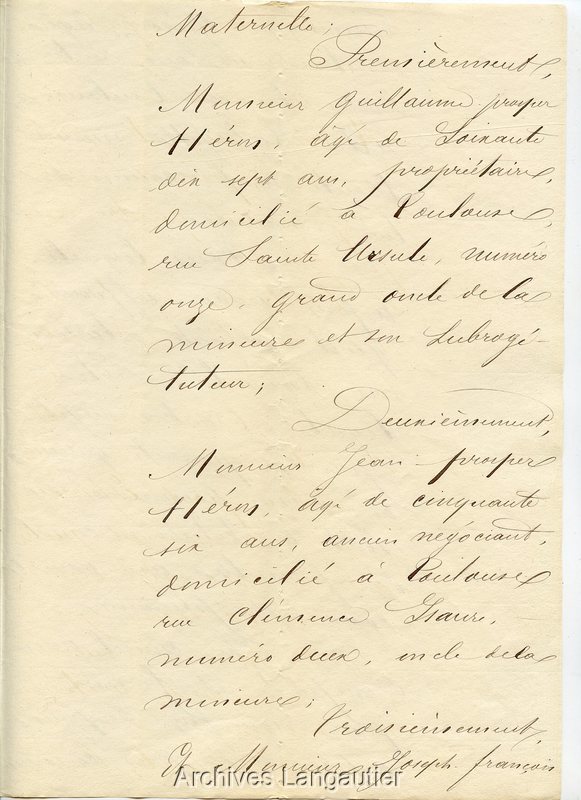 Maternelle;
Premièrement,
Monsieur Guillaume prosper
Héron, âgé de Soixante
dix sept ans, propriétaire,
domicilié à Toulouse,
rue Sainte Ursule, numéro
onze, grand oncle de la
mineure et son Subrogé-
tuteur;
Deuxièmement,
Monsieur Jean prosper
Héron, âgé de cinquante
six ans, ancien négociant,
domicilié à Toulouse
rue Clémence Isaure,
numéro deux, oncle de la
mineure;
Troisièmement,
Et Monsieur Joseph françois
Archives Langautier